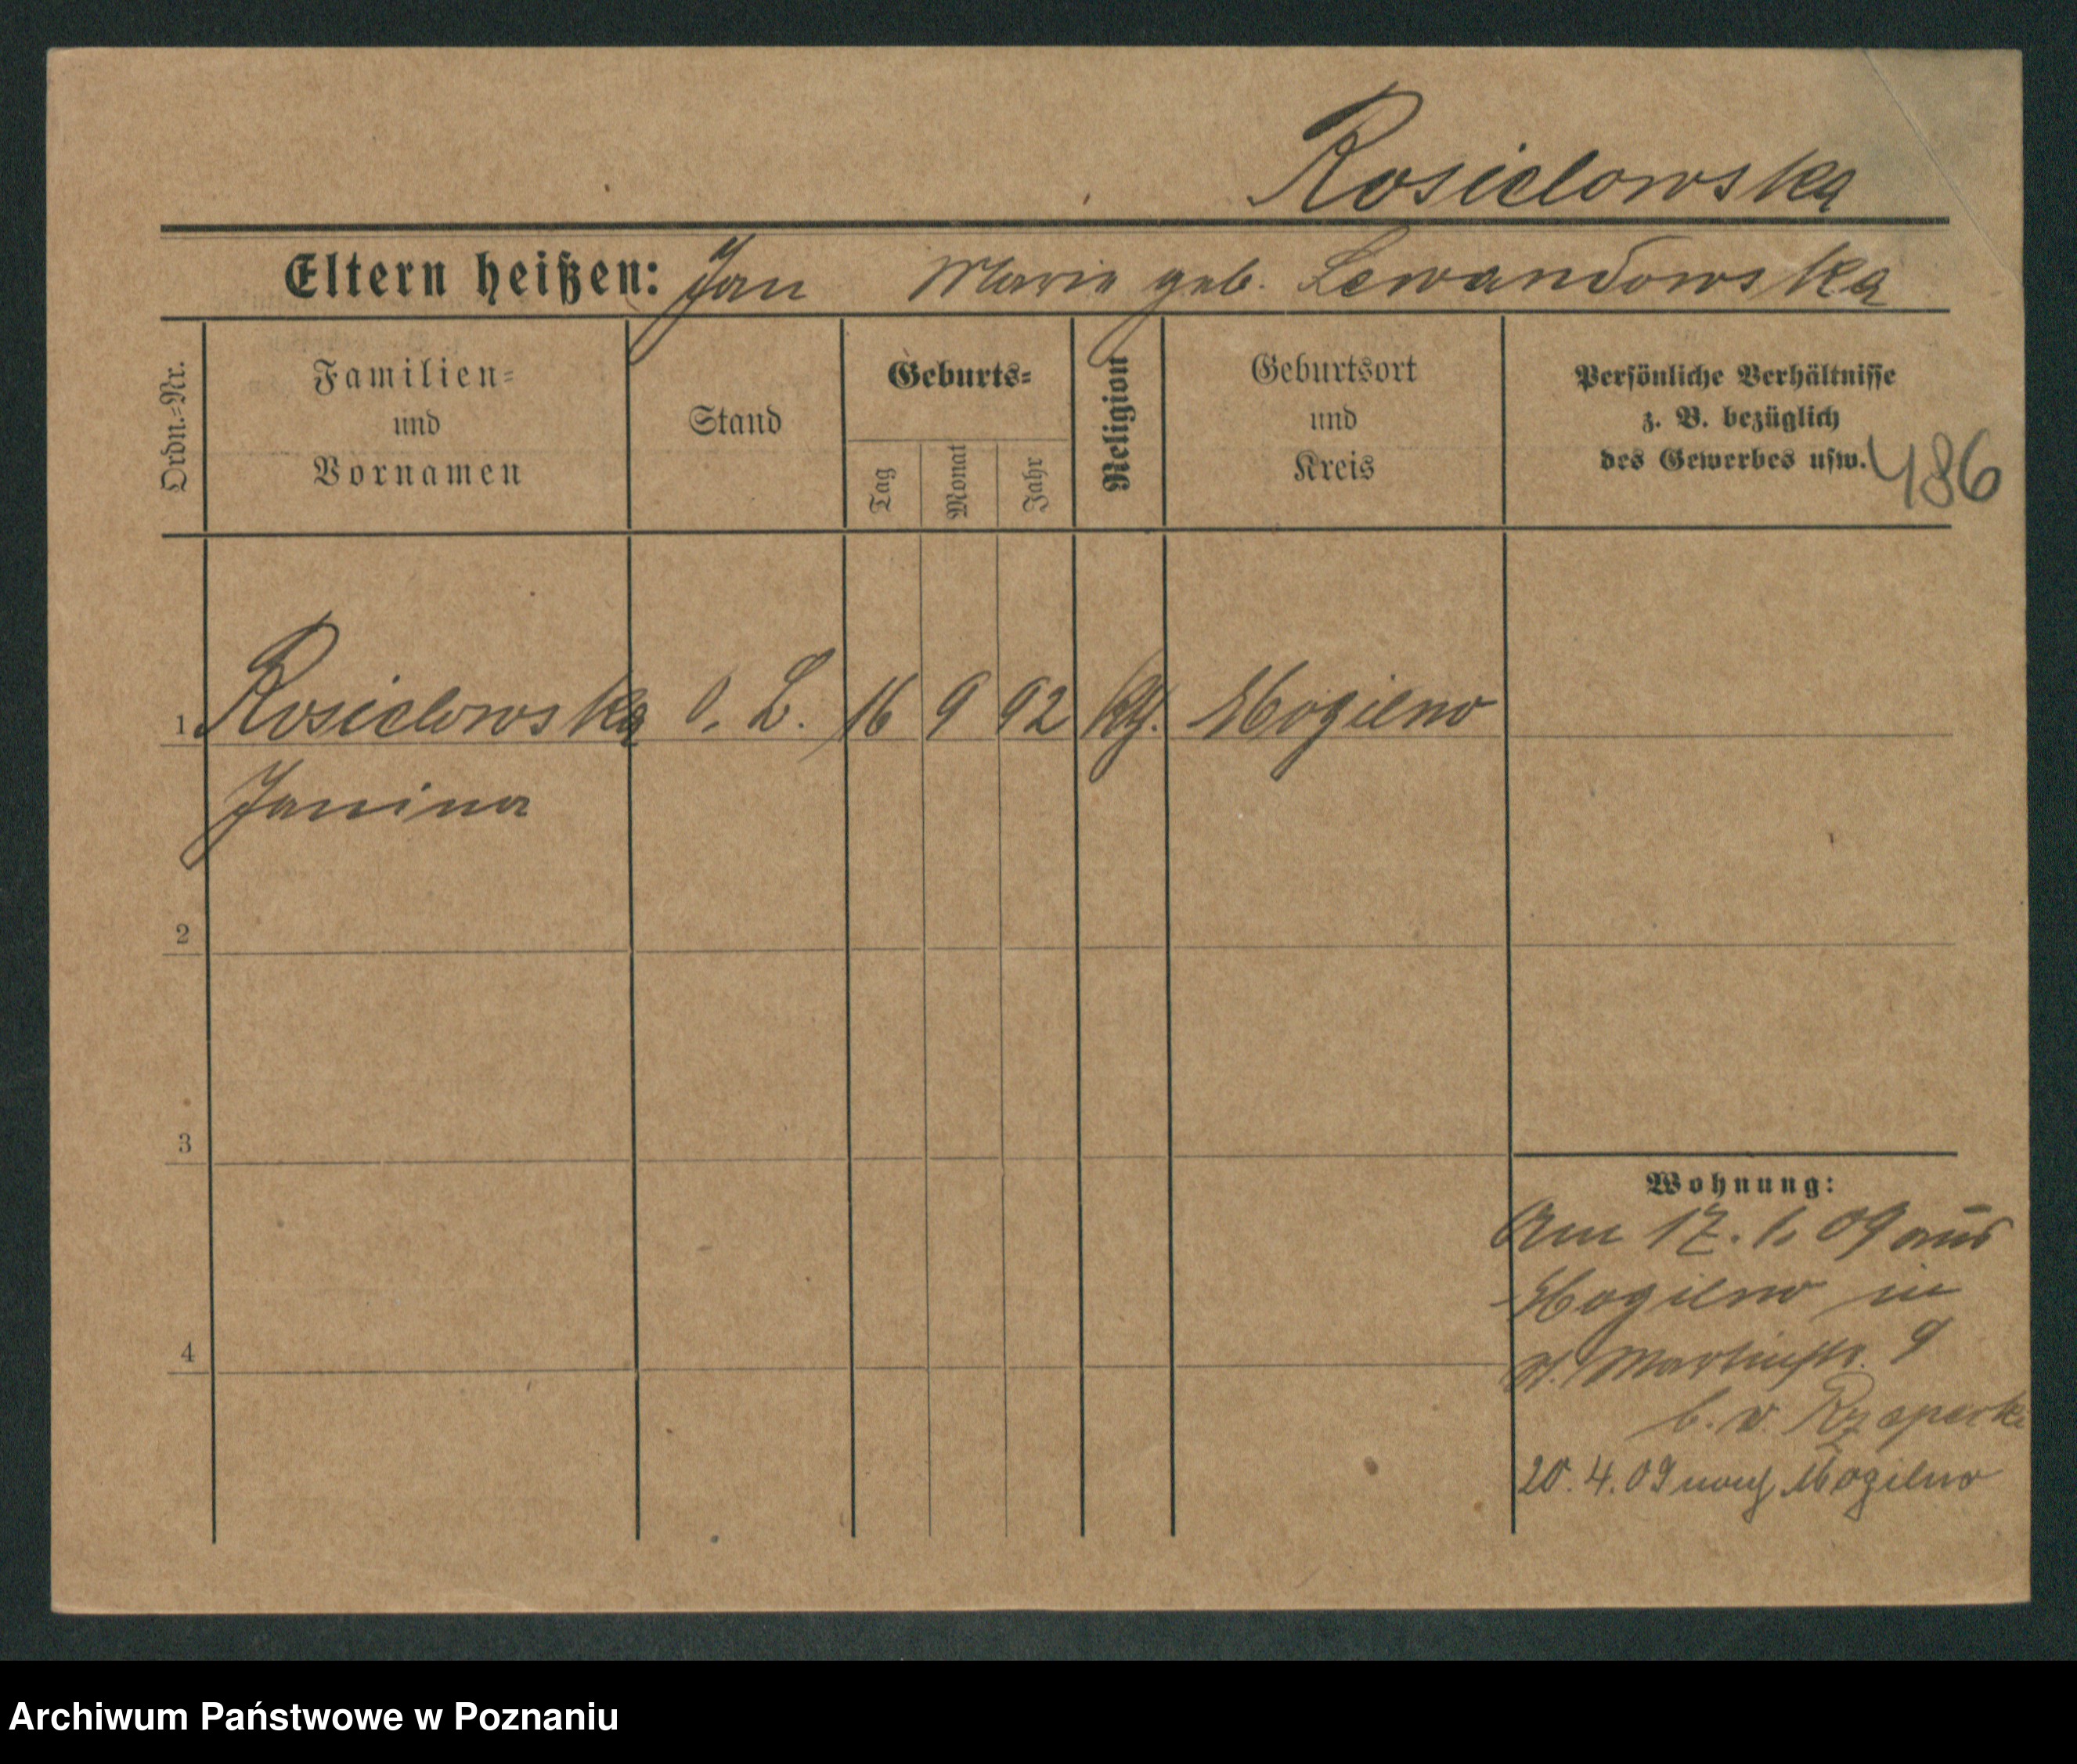 Rosielowska
Eltern heißen: Jan Maria geb. Lewandowska
Ordn.-Nr.
Familien-
und
Vornamen
Stand
Geburts-
Tag
Monat
Jahr
Religion
Geburtsort
und
Kreis
Persönliche Verhältnisse
z. B. bezüglich
des Gewerbes usw.
486
1 Rosielowska o. B. 16 9 92 Mogilno
Janina
2
3
4
Wohnung:
Am 17. 1. 09 aus
Mogilno in
St. Martinstr. 9
b. v.
20. 4. 09 nach Mogilno
Archiwum Państwowe w Poznaniu